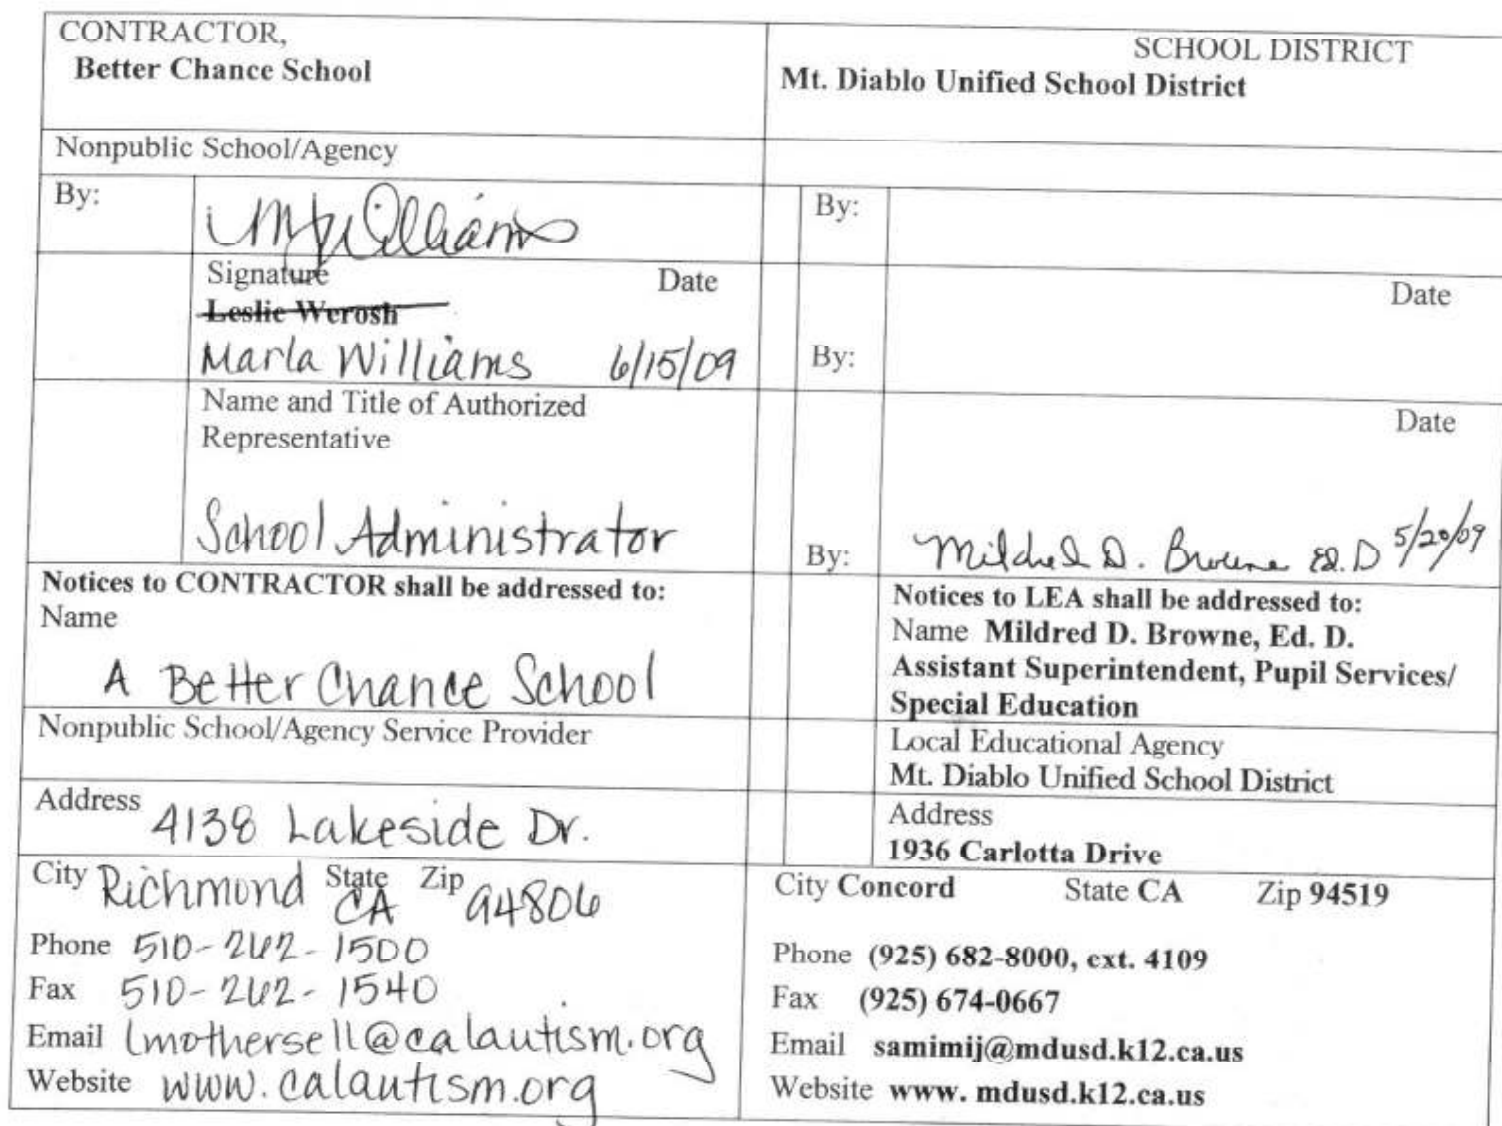 CONTRACTOR,
Better Chance School
Nonpublic School/Agency
By:
MWilliams
Signature Date
Leslie Werosh
Marla Williams 6/15/09
Name and Title of Authorized
Representative
School Administrator
Notices to CONTRACTOR shall be addressed to:
Name
A Better Chance School
Nonpublic School/Agency Service Provider
Address 4138 Lakeside Dr.
City Richmond State CA Zip 94806
Phone 510-262-1500
Fax 510-262-1540
Email lmothersell@calautism.org
Website www.calautism.org
SCHOOL DISTRICT
Mt. Diablo Unified School District
By:
Date
By:
Date
By: Mildred D. Browne Ed.D 5/20/09
Notices to LEA shall be addressed to:
Name Mildred D. Browne, Ed. D.
Assistant Superintendent, Pupil Services/
Special Education
Local Educational Agency
Mt. Diablo Unified School District
Address
1936 Carlotta Drive
City Concord State CA Zip 94519
Phone (925) 682-8000, ext. 4109
Fax (925) 674-0667
Email samimij@mdusd.k12.ca.us
Website www. mdusd.k12.ca.us